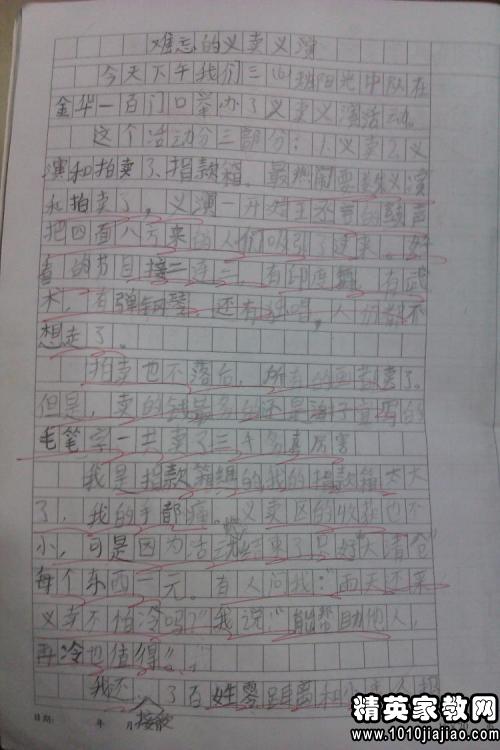 难忘的义卖义演
今天下午我们三(4)班阳光中队在
金华一百门口举办了义卖义演活动。
这个活动分三部分:1、义卖2、义
演和拍卖3、捐款箱。最热闹要数义演
和拍卖了,义演一开始王不声的鼓声
把四面八方来的人们吸引了过来。好
看的节目接二连三,有印度舞,有武
术,有弹钢琴,还有独唱,人们都不
想走了。
拍卖也不落后,所有的画都卖了。
但是,卖的钱最多的还是
毛笔字一共卖了三千多真厉害
我是捐款箱组的我的捐款箱太大
了,我的手都痛。义卖区的收获也不
小,可是因为活动快结束了只好“大清仓”
每个东西一元。有人问我:“雨天还来
义卖不怕冷吗?”我说:“能帮助他人,
再冷也值得。”
我还接敬了百姓零距离和
日期: 年 月
精英家教网
www.1010jiajiao.com